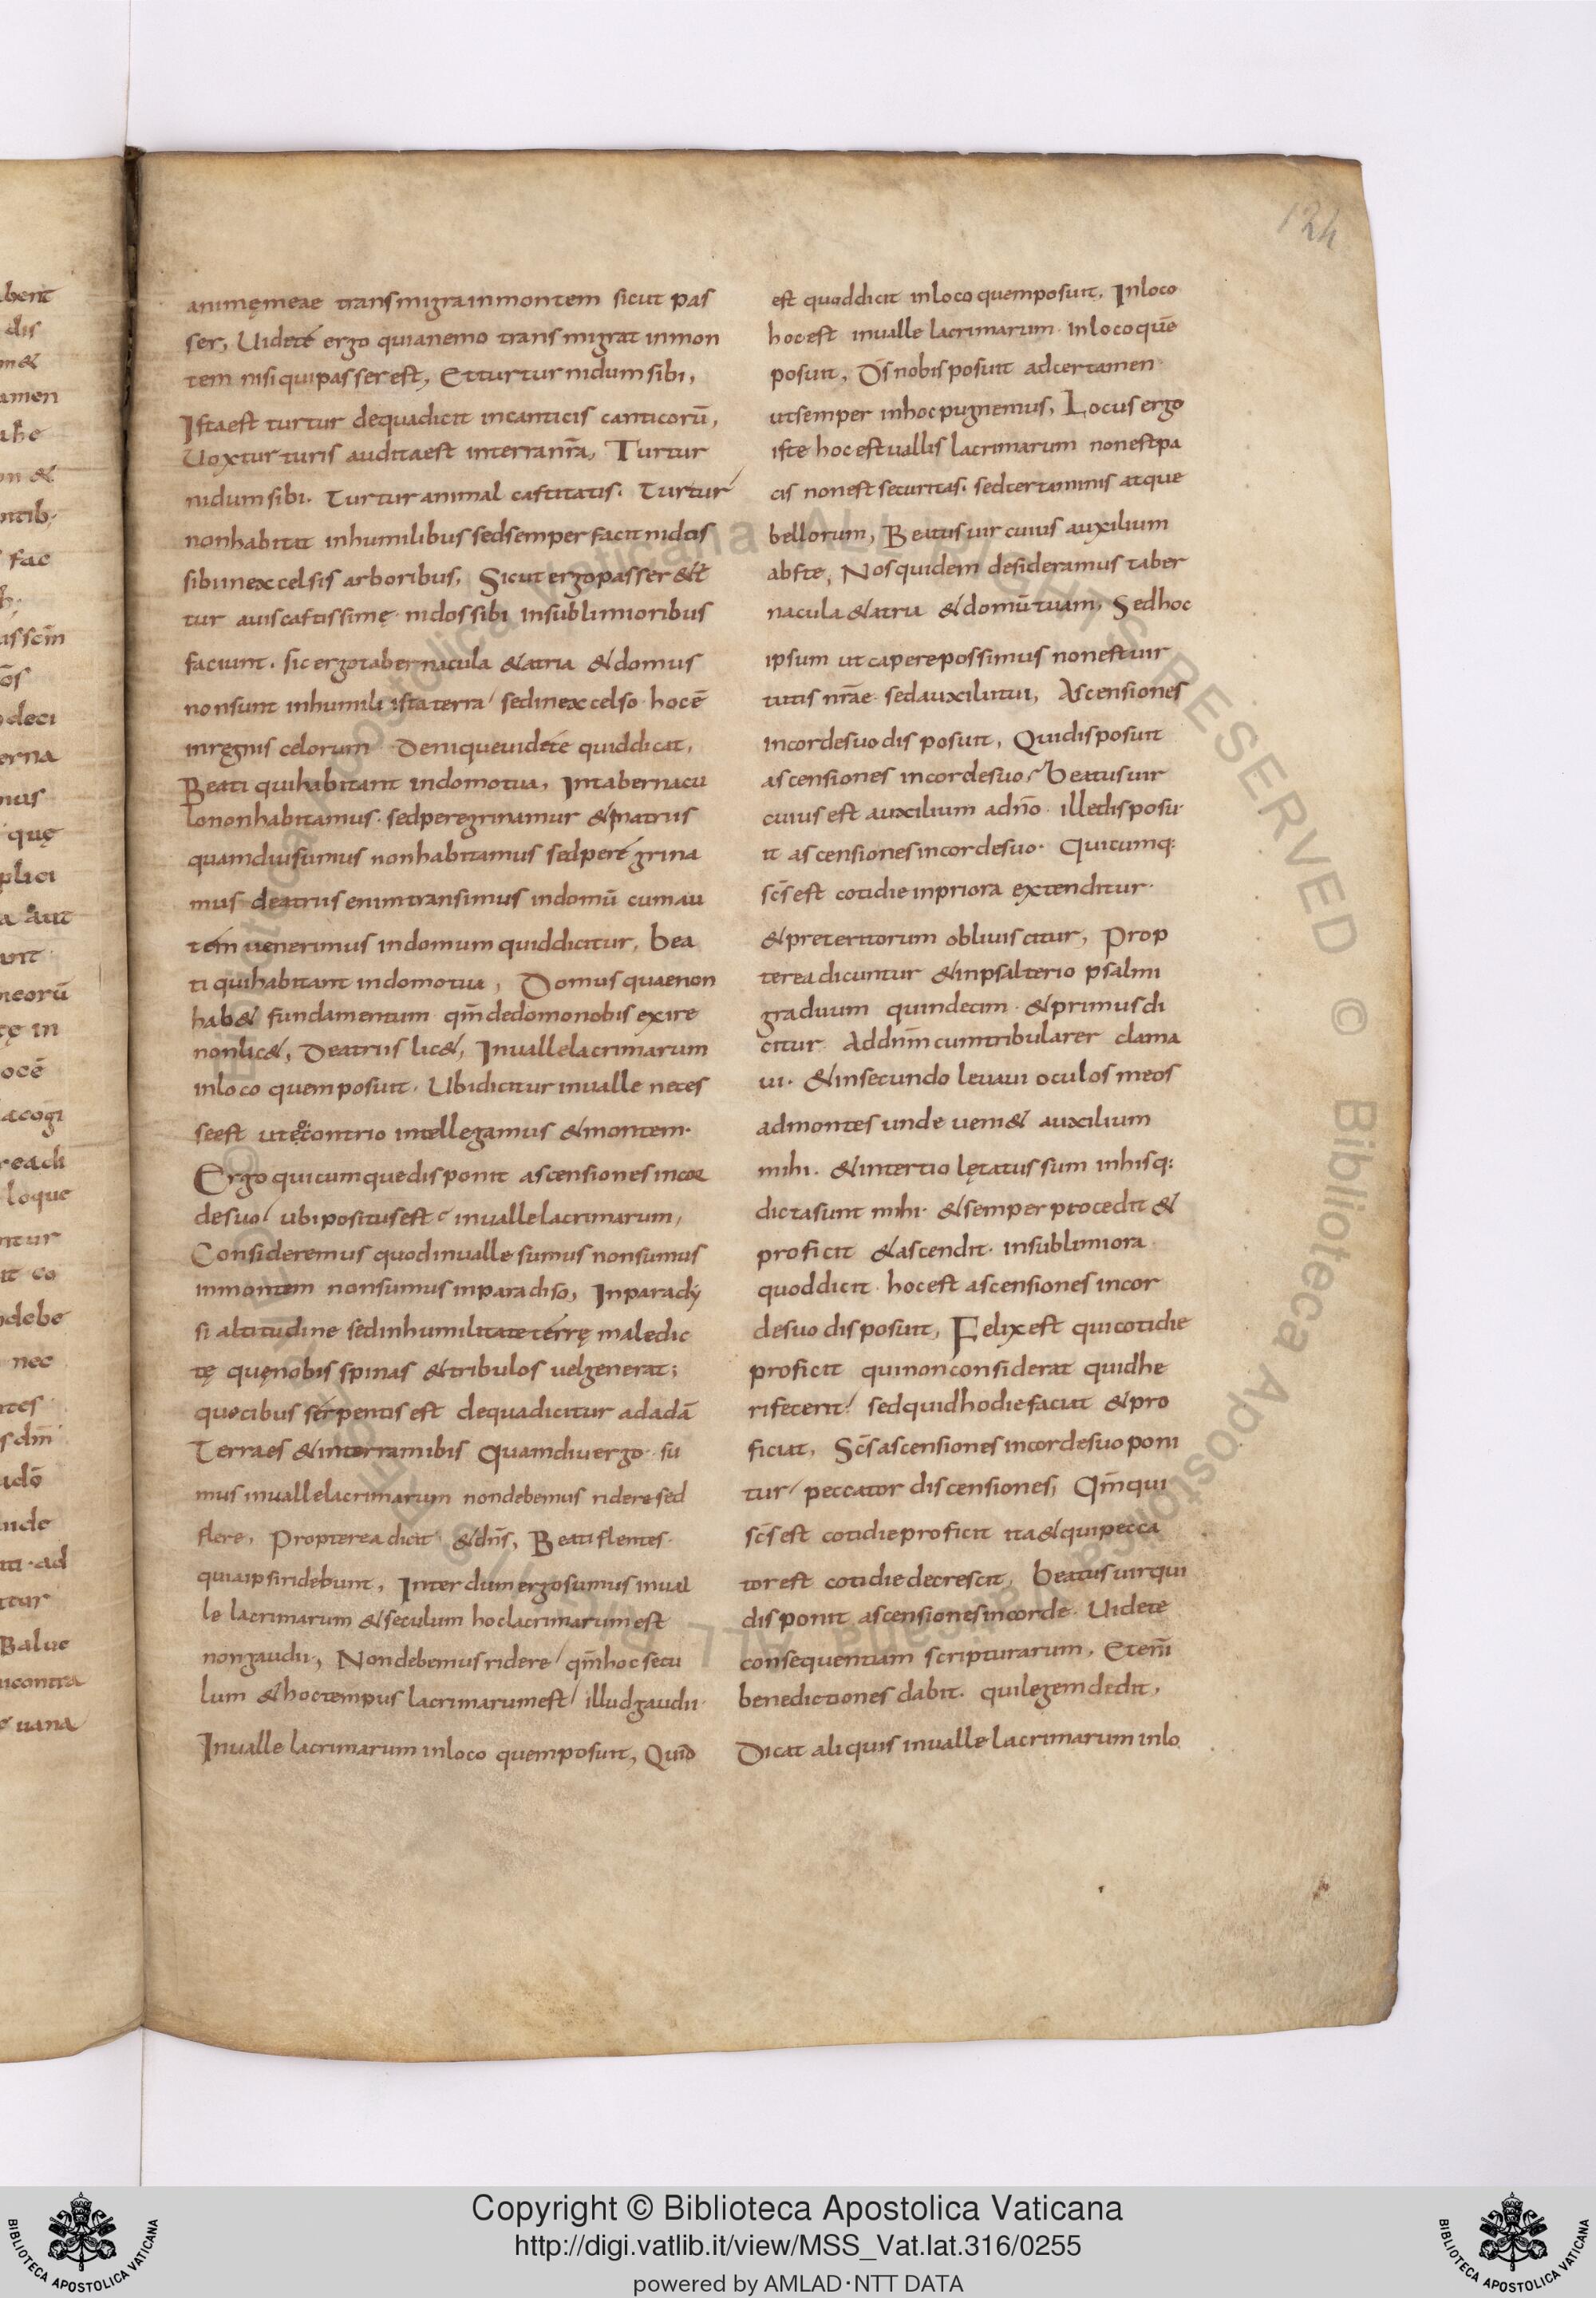 124
animę meae transmigra in montem sicut pas
ser, Uidete ergo quia nemo transmigrat in mon
tem nisi qui passer est, Et turtur nidum sibi,
Ista est turtur de qua dicit in canticis canticorū,
Uox turturis audita est in terra nr̄a, Turtur
nidum sibi. Turtur animal castitatis. Turtur
non habitat in humilibus sed semper facit nidos
sibi in excelsis arboribus, Sicut ergo passer & t
tur auis castissimę nidos sibi in sublimioribus
faciunt. sic ergo tabernacula & atria & domus
non sunt in humili ista terra sed in excelso. hoc ē
in regnis celorum Denique uidete quid dicit,
Beati qui habitant in domo tua, In tabernacu
lo non habitamus. sed peregrinamur & in atriis
quamdiu sumus non habitamus sed peregrina
mus de atriis enim transimus in domū cum au
tem uenerimus in domum quid dicitur, bea
ti qui habitant in domo tua, Domus quae non
hab& fundamentum qm̄ de domo nobis exire
non lic&, De atriis lic&, In ualle lacrimarum
in loco quem posuit. Ubi dicitur in ualle neces
se est ut e contrio intellegamus & montem.
Ergo quicumque disponit ascensiones in cor
de suo ubi positus est in ualle lacrimarum,
Consideremus quod in ualle sumus non sumus
in montem non sumus in paradiso, In parady
si altitudine sed in humilitate terrę maledic
tę quę nobis spinas & tribulos uel generat;
quę cibus serpentis est de qua dicitur ad adā
Terra es & in terram ibis Quamdiu ergo su
mus in ualle lacrimarum non debemus ridere sed
flere, Propterea dicit & dn̄s, Beati flentes.
quia ipsi ridebunt, Interdum ergo sumus in ual
le lacrimarum & seculum hoc lacrimarum est
non gaudii, Non debemus ridere qm̄ hoc secu
lum & hoc tempus lacrimarum est illud gaudii.
In ualle lacrimarum in loco quem posuit, Quid
est quod dicit in loco quem posuit, In loco
hoc est in ualle lacrimarum in loco quē
posuit, Ds̄ nobis posuit ad certamen
ut semper in hoc pugnemus, Locus ergo
iste hoc est uallis lacrimarum non est pa
cis non est securitas. sed certaminis atque
bellorum, Beatus uir cuius auxilium
abs te, Nos quidem desideramus taber
nacula & atria & domū tuam, Sed hoc
ipsum ut capere possimus non est uir
tutis nr̄ae sed auxilii tui, Ascensiones
in corde suo disposuit, Qui disposuit
ascensiones in corde suo Beatus uir
cuius est auxilium ad n̄o. ille disposu
it ascensiones in corde suo. Quicumq;
sc̄s est cotidie in priora extenditur.
& preteritorum obliuiscitur, Prop
terea dicuntur & in psalterio psalmi
graduum quindecim. & primus di
citur Ad dnm̄ cum tribularer clama
ui. & in secundo leuaui oculos meos
ad montes unde ueni& auxilium
mihi. & in tertio lętatus sum in his q;
dicta sunt mihi. & semper procedit &
proficit & ascendit. in sublimiora
quod dicit hoc est ascensiones in cor
de suo disposuit, Felix est qui cotidie
proficit qui non considerat quid he
ri fecerit sed quid hodie faciat & pro
ficiat, Sc̄s ascensiones in corde suo poni
tur peccator discensiones, Qm̄ qui
sc̄s est cotidie proficit ita & qui pecca
tor est cotidie decrescit, beatus uir qui
disponit ascensiones in corde. Uidete
consequentiam scripturarum, Eteni̅
benedictiones dabit. qui legem dedit,
Dicat aliquis in ualle lacrimarum in lo
Copyright © Biblioteca Apostolica Vaticana
http://digi.vatlib.it/view/MSS_Vat.lat.316/0255
powered by AMLAD·NTT DATA
BIBLIOTECA APOSTOLICA VATICANA
BIBLIOTECA APOSTOLICA VATICANA